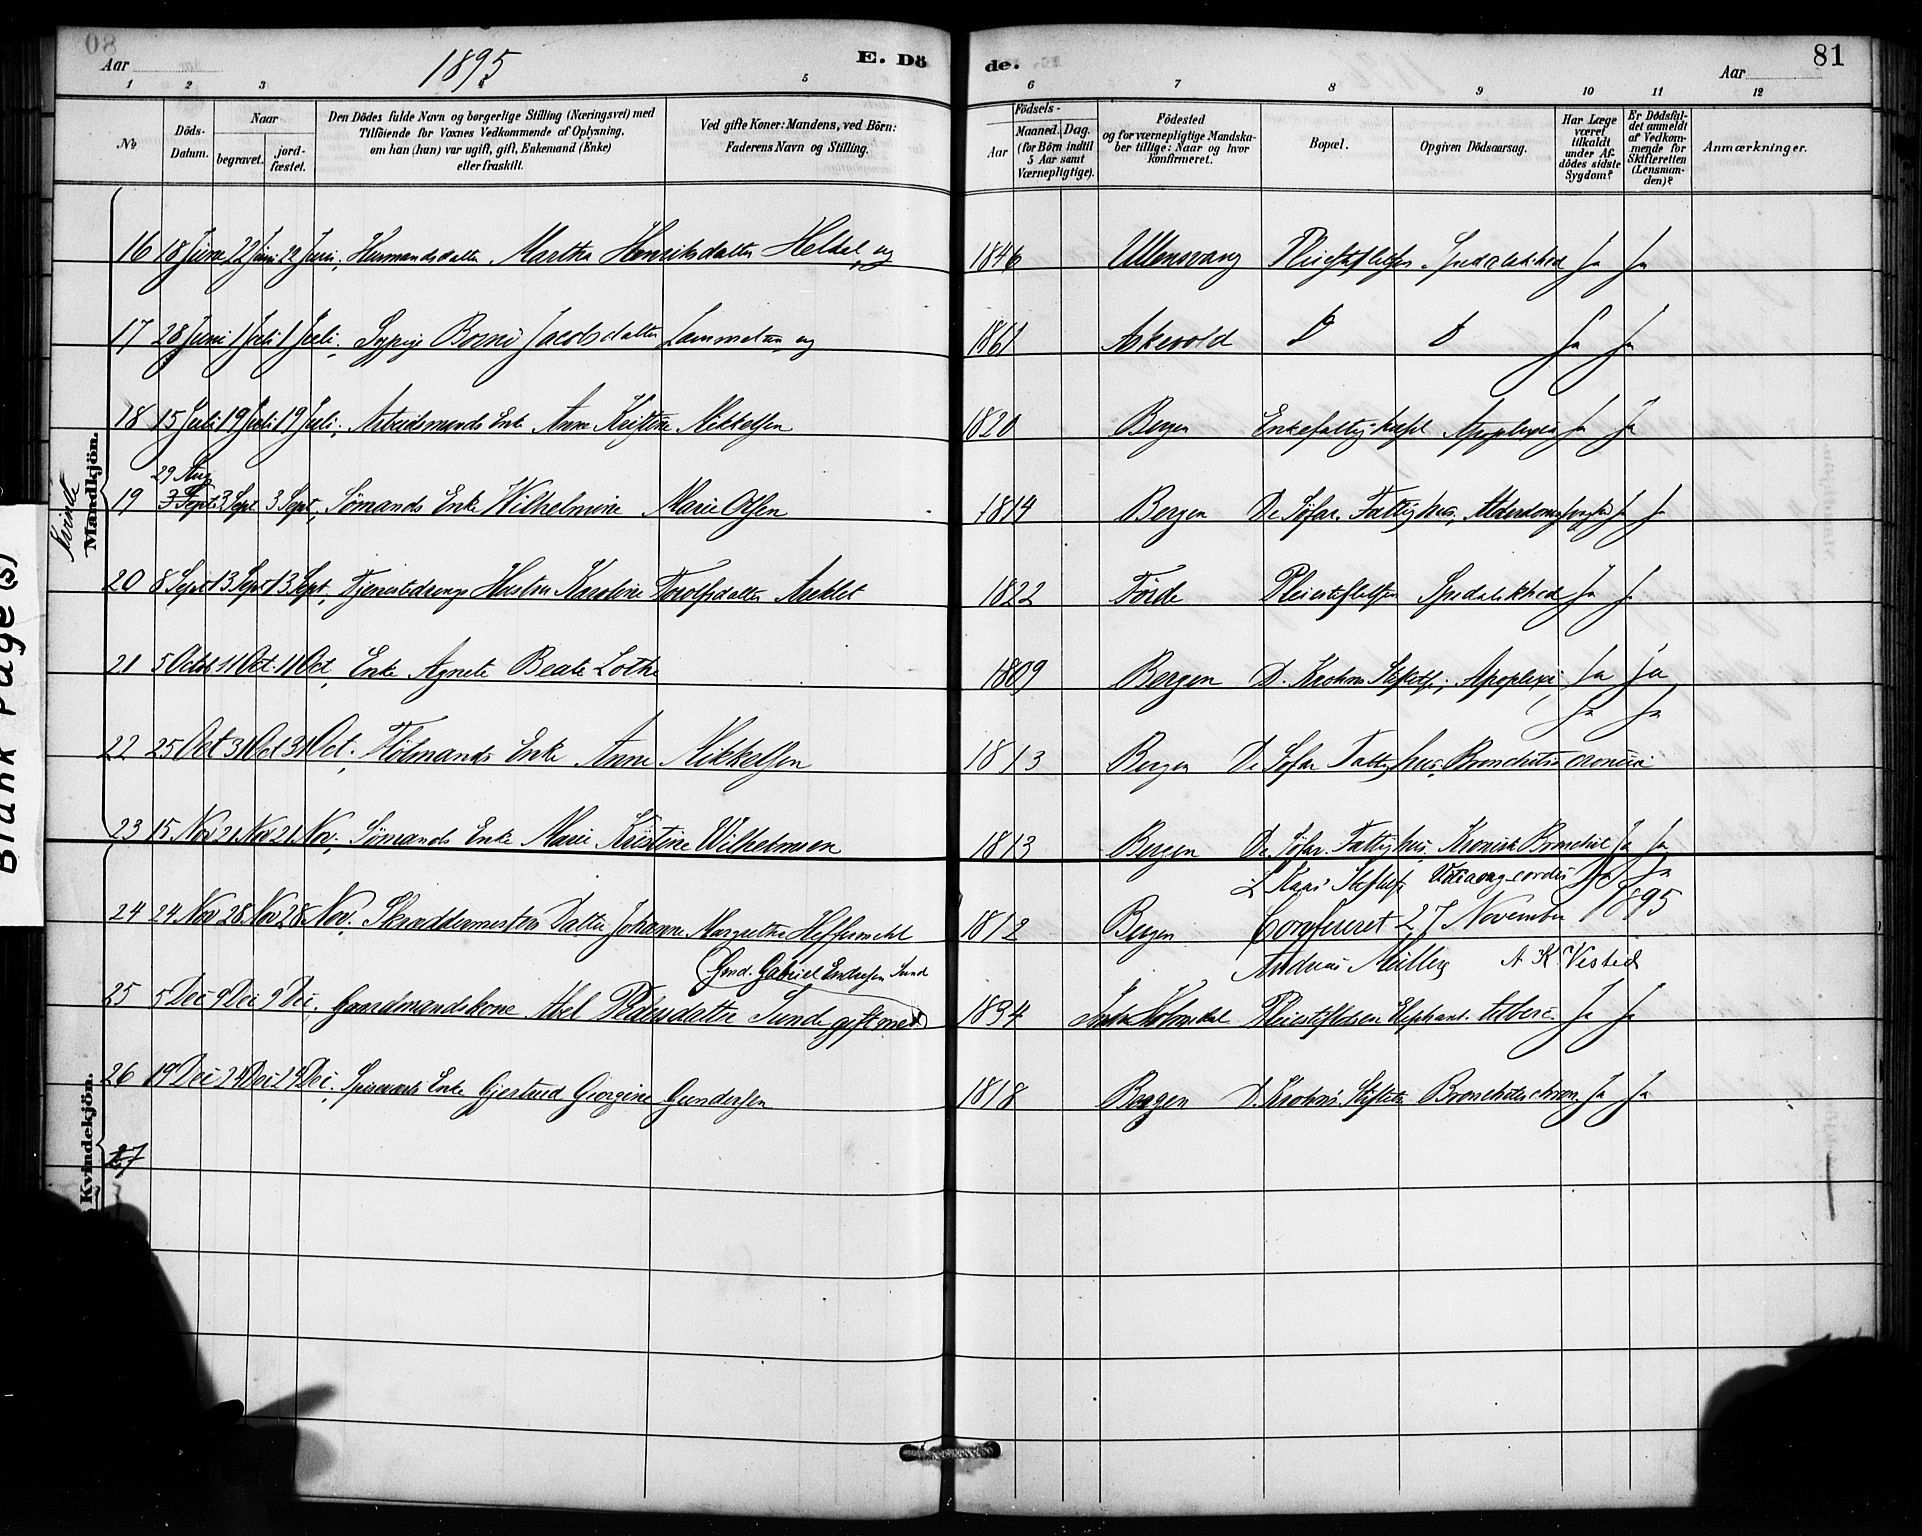 08
Aar
1895
E. Dö
de.
Aar
81
1 2 3 4 5 6 7 8 9 10 11 12
No
Döds-Datum.
Naar
begravet.
jord-fæstet.
Den Dödes fulde Navn og borgerlige Stilling (Næringsvei) med
Tilföiende for Voxnes Vedkommende af Oplysning,
om han (hun) var ugift, gift, Enkemand (Enke)
eller fraskilt.
Ved gifte Koner: Mandens, ved Börn:
Faderens Navn og Stilling.
Födsels-
Aar
Maaned. Dag.
(for Börn indtil
5 Aar samt
Værnepligtige).
Födested
og for værnepligtige Mandska-
ber tillige: Naar og hvor
konfirmeret.
Bopæl.
Opgiven Dödsaarsag.
Har Læge
været
tilkaldt
under Af-
dödes sidste
Sygdom?
Er Dödsfal-
det anmeldt
af Vedkom-
mende for
Skifteretten
(Lensman-
den)?
Anmærkninger.
Kvinde
Mandkjön.
16 18 Juni 22 Juni 22 Juni, Husmandsdatter Martha Henriksdatter Heldal, ug 1846 Ullensvang Pleiestiftelsen Spedalskhed Ja Ja
17 28 Juni 1 Juli 1 Juli, Jacobsdatter ug 1861 Askevold D D Ja Ja
18 15 Juli 19 Juli 19 Juli, Arbeidsmands Enke Anne Kristine Mikkelsen 1820 Bergen Enkefattighuset Apoplexia Ja Ja
29 Aug
19 3 Sept 3 Sept 3 Sept, Sømands Enke Wilhelmine Marie Olsen 1814 Bergen De Søfar. Fattighus, Ja Ja
20 8 Sept 13 Sept 13 Sept, Tjenestedrengs Hustru Karoline Torolfsdatter 1822 Förde Pleiestiftelsen Spedalskhed Ja Ja
21 5 Octob 11 Oct. 11 Oct, Enke Agnete Beate Lothe 1809 Bergen D. Krohns Stiftelse, Apoplexi, Ja Ja
22 25 Oct 31 Oct 31 Oct. Enke Anne Mikkelsen 1813 Bergen De Søfar Fattighus, Bronchitis cronica Ja Ja
23 15 Nov 21 Nov 21 Nov, Sømands Enke Marie Kristine Wilhelmsen 1813 Bergen De Søfar. Fattighus, Kronisk Bronchit Ja Ja
24 24 Nov 28 Nov 28 Nov. Skræddermesters Datter Johanne Margrethe Heffermehl 1812 Bergen Stiftelse cordis Ja Ja
Confereret 27 November 1895
Andreas Müller A. K. Vested
Gmd. Gabriel Endresen Sunde
25 5 Dec 9 Dec 9 Dec. Gaardmandskone Abel Pedersdatter Sunde gift med 1834 Indre Holmedal Pleiestiftelsen Elephant. Ja Ja
26 19 Dec 24 Dec 24 Dec. Enke Gjertrud Georgine Gundersen 1818 Bergen D. Krohns Stiftelse Bronchitis chron. Ja Ja
27
Kvindekjön.
Blank Page(s)